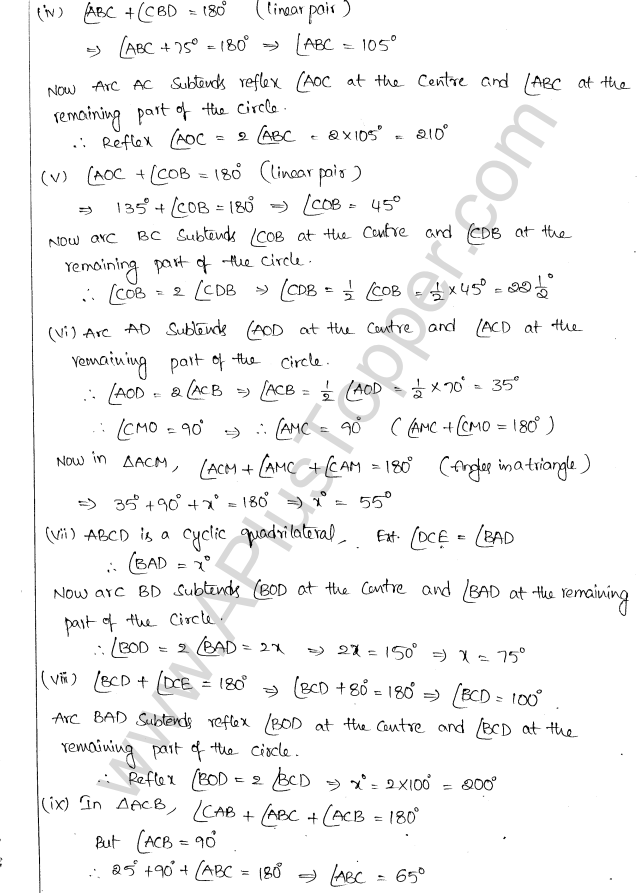 (iv) ∠ABC + ∠CBD = 180° (linear pair)
⇒ ∠ABC + 75° = 180° ⇒ ∠ABC = 105°
Now Arc AC Subtends reflex ∠AOC at the Centre and ∠ABC at the
remaining part of the Circle.
∴ Reflex ∠AOC = 2 ∠ABC = 2×105° = 210°
(v) ∠AOC + ∠COB = 180° (linear pair)
⇒ 135° + ∠COB = 180° ⇒ ∠COB = 45°
Now arc BC Subtends ∠COB at the Centre and ∠CDB at the
remaining part of the Circle.
∴ ∠COB = 2 ∠CDB ⇒ ∠CDB = 1/2 ∠COB = 1/2 × 45° = 22 1/2°
(vi) Arc AD Subtends ∠AOD at the Centre and ∠ACD at the
remaining part of the Circle.
∴ ∠AOD = 2∠ACB ⇒ ∠ACB = 1/2 ∠AOD = 1/2 × 70° = 35°
∴ ∠CMO = 90° ⇒ ∴ ∠AMC = 90° (∠AMC + ∠CMO = 180°)
Now in ΔACM, ∠ACM + ∠AMC + ∠CAM = 180° (Angles in a triangle)
⇒ 35° + 90° + x° = 180° ⇒ x° = 55°
(vii) ABCD is a Cyclic quadrilateral, Ext. ∠DCE = ∠BAD
∴ ∠BAD = x°
Now arc BD Subtends ∠BOD at the Centre and ∠BAD at the remaining
part of the Circle.
∴ ∠BOD = 2 ∠BAD = 2x ⇒ 2x = 150° ⇒ x = 75°
(viii) ∠BCD + ∠DCE = 180° ⇒ ∠BCD + 80° = 180° ⇒ ∠BCD = 100°
Arc BAD Subtends reflex ∠BOD at the Centre and ∠BCD at the
remaining part of the Circle.
∴ Reflex ∠BOD = 2 ∠BCD ⇒ x° = 2×100° = 200°
(ix) In ΔACB, ∠CAB + ∠ABC + ∠ACB = 180°
But ∠ACB = 90°
∴ 25° + 90° + ∠ABC = 180° ⇒ ∠ABC = 65°
www.APlusTopper.com